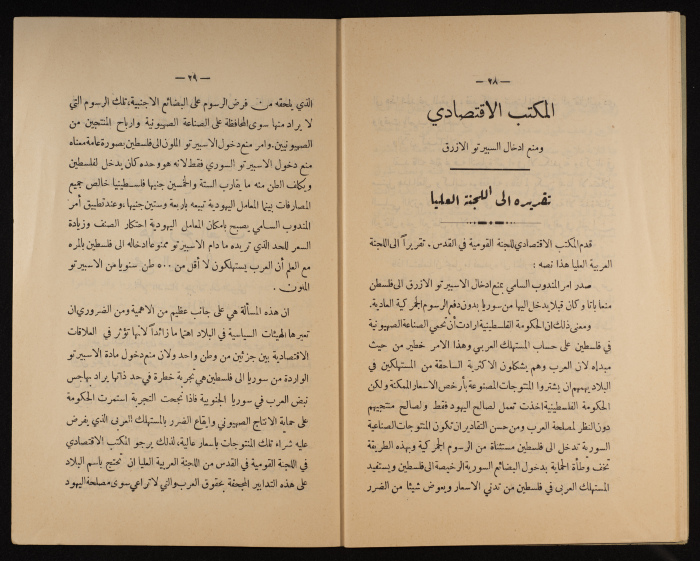 — ٢٨ —
المكتب الاقتصادي
ومنع ادخال السبيرتو الازرق
تقريره الى اللجنة العليا
قدم المكتب الاقتصادي للجنة القومية في القدس . تقريراً الى اللجنة
العربية العليا هذا نصه :
صدر امر المندوب السامي بمنع ادخال الاسبيرتو الازرق الى فلسطين
منعا باتا وكان قبلا يدخل اليها من سوريا بدون دفع الرسوم الجمركية العادية.
ومعنى ذلك ان الحكومة الفلسطينية ارادت أن تحمي الصناعة الصهيونية
في فلسطين على حساب المستهلك العربي وهذا الامر خطير من حيث
مبدأه لان العرب وهم يشكلون الاكثرية الساحقة من المستهلكين في
البلاد يهمهم ان يشتروا المنتوجات المصنوعة بأرخص الاسعار الممكنة ولكن
الحكومة الفلسطينية اخذت تعمل لصالح اليهود فقط ولصالح منتجيهم
دون النظر لمصلحة العرب ومن حسن التقادير ان تكون المنتوجات الصناعية
السورية تدخل الى فلسطين مستثناة من الرسوم الجمركية وبهذه الطريقة
تخف وطأة الحماية بدخول البضائع السورية الرخيصة الى فلسطين ويستفيد
المستهلك العربي في فلسطين من تدني الاسعار ويعوض شيئا من الضرر
— ٢٩ —
الذي يلحقه من فرض الرسوم على البضائع الاجنبية، تلك الرسوم التي
لا يراد منها سوى المحافظة على الصناعة الصهيونية وارباح المنتجين من
الصهيونيين. وامر منع دخول الاسبيرتو الملون الى فلسطين بصورة عامة معناه
منع دخول الاسبيرتو السوري فقط لانه هو وحده كان يدخل لفلسطين
ويكلف الطن منه ما يقارب الستة والخمسين جنيها فلسطينيا خالص جميع
المصارفات بينما المعامل اليهودية تبيعه باربعة وستين جنيها، وعند تطبيق أمر
المندوب السامي يصبح بامكان المعامل اليهودية احتكار الصنف وزيادة
السعر للحد الذي تريده ما دام الاسبيرتو ممنوعا ادخاله الى فلسطين بالمرة
مع العلم أن العرب يستهلكون لا أقل من ٥٠٠ طن سنويا من الاسبيرتو
الملون .
ان هذه المسألة هي على جانب عظيم من الاهمية ومن الضروري ان
تعيرها الهيئات السياسية في البلاد اهتماما زائداً لانها تؤثر في العلاقات
الاقتصادية بين جزئين من وطن واحد ولان منع دخول مادة الاسبيرتو
الواردة من سوريا الى فلسطين هي تجربة خطرة في حد ذاتها يراد بها جس
نبض العرب في سوريا الجنوبية فاذا نجحت التجربة استمرت الحكومة
على حماية الانتاج الصهيوني وايقاع الضرر بالمستهلك العربي الذي يفرض
عليه شراء تلك المنتوجات باسعار عالية، لذلك يرجو المكتب الاقتصادي
في اللجنة القومية في القدس من اللجنة العربية العليا ان تحتج باسم البلاد
على هذه التدابير المجحفة بحقوق العرب والتي لا تراعي سوى مصلحة اليهود